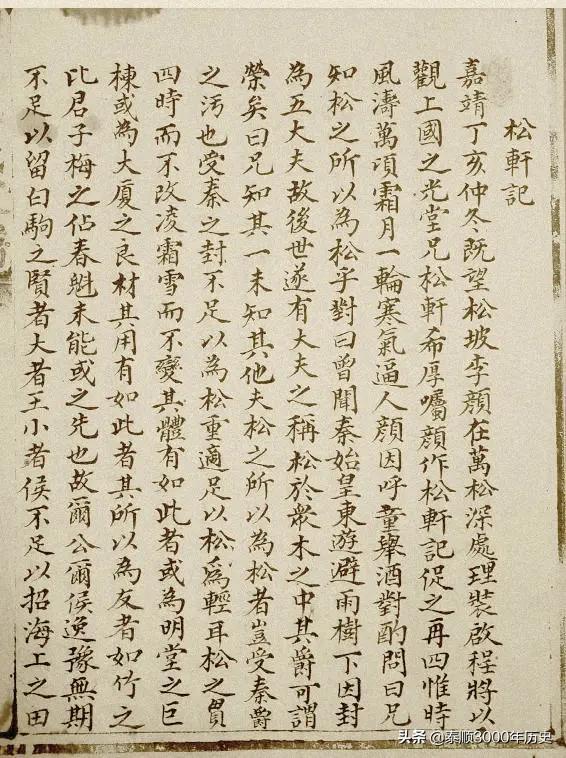 松軒記
嘉靖丁亥仲冬既望松坡李顔在萬松深處理裝啟程將以
觀上國之光堂兄松軒希厚囑顔作松軒記促之再四惟時
風濤萬頃霜月一輪寒氣逼人顔因呼童舉酒對酌問曰兄
知松之所以為松乎對曰曾聞秦始皇東遊避雨樹下因封
為五大夫故後世遂有大夫之稱松於衆木之中其爵可謂
榮矣曰兄知其一未知其他夫松之所以為松者豈受秦爵
之汚也受秦之封不足以為松重適足以松爲輕耳松之貫
四時而不改凌霜雪而不變其體有如此者或為明堂之巨
棟或為大厦之良材其用有如此者其所以為友者如竹之
比君子梅之佔春魁未能或之先也故爾公爾侯逸豫無期
不足以留白駒之賢者大者王小者侯不足以招海工之田
头条 @泰顺3000年历史